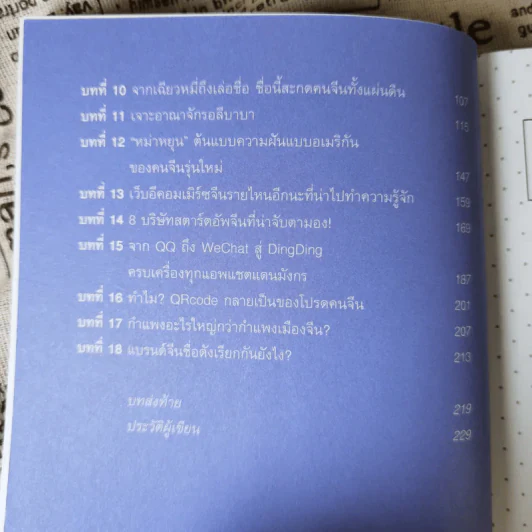 บทที่ 10 จากเฉียวหมี่ถึงเล่อชื่อ ชื่อนี้สะกดคนจีนทั้งแผ่นดิน 107
บทที่ 11 เจาะอาณาจักรอลีบาบา 115
บทที่ 12 "หม่าหยุน" ต้นแบบความฝันแบบอเมริกัน
ของคนจีนรุ่นใหม่ 147
บทที่ 13 เว็บอีคอมเมิร์ซจีนรายไหนอีกนะที่น่าไปทำความรู้จัก 159
บทที่ 14 8 บริษัทสตาร์ตอัพจีนที่น่าจับตามอง! 169
บทที่ 15 จาก QQ ถึง WeChat สู่ DingDing
ครบเครื่องทุกแอพแชตแดนมังกร 187
บทที่ 16 ทำไม? QRcode กลายเป็นของโปรดคนจีน 201
บทที่ 17 กำแพงอะไรใหญ่กว่ากำแพงเมืองจีน? 207
บทที่ 18 แบรนด์จีนชื่อดังเรียกกันยังไง? 213
บทส่งท้าย 219
ประวัติผู้เขียน 229